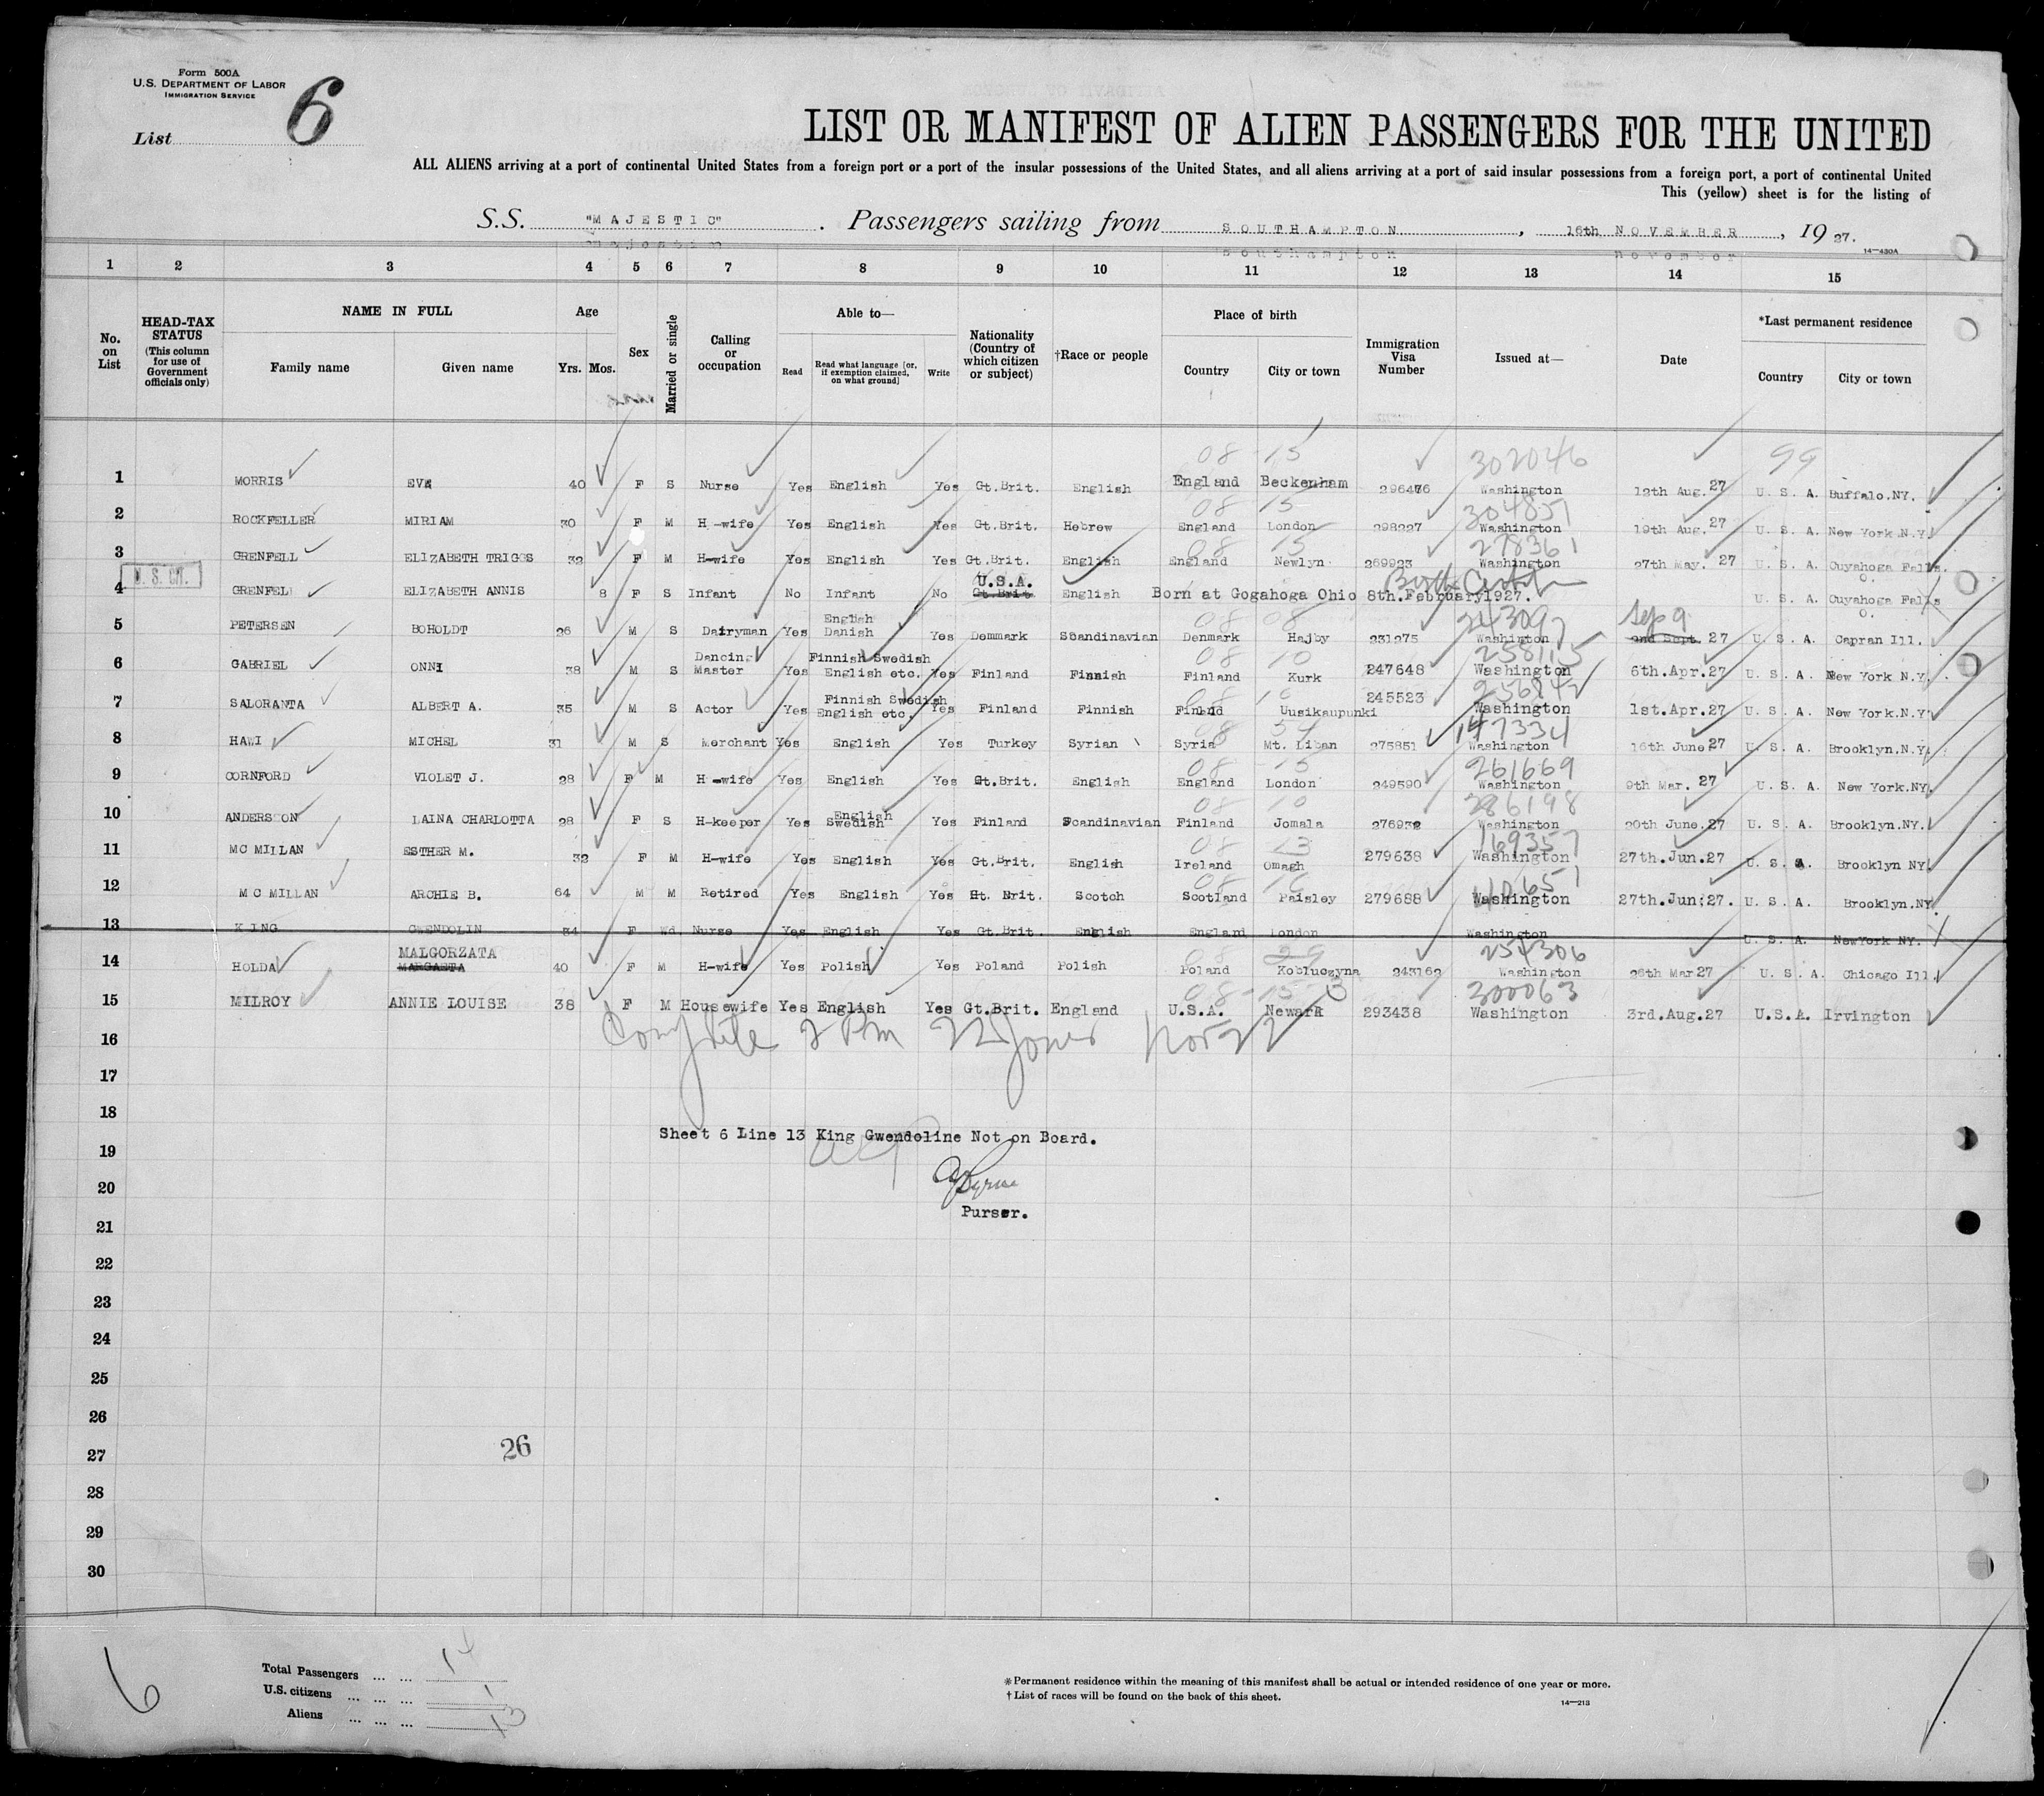 Form 500A
U.S. DEPARTMENT OF LABOR
IMMIGRATION SERVICE
List 6
LIST OR MANIFEST OF ALIEN PASSENGERS FOR THE UNITED
ALL ALIENS arriving at a port of continental United States from a foreign port or a port of the insular possessions of the United States, and all aliens arriving at a port of said insular possessions from a foreign port, a port of continental United
This (yellow) sheet is for the listing of
S.S. "MAJESTIC". Passengers sailing from SOUTHAMPTON, 16th NOVEMBER, 1927.
14—430A
1 2 3 4 5 6 7 8 9 10 11 12 13 14 15
No. on List
HEAD-TAX STATUS (This column for use of Government officials only)
NAME IN FULL
Family name Given name
Age
Yrs. Mos.
Sex
Married or single
Calling or occupation
Able to—
Read Read what language [or, if exemption claimed, on what ground] Write
Nationality (Country of which citizen or subject)
†Race or people
Place of birth
Country City or town
Immigration Visa Number
Issued at—
Date
*Last permanent residence
Country City or town
08 15 302046 99
1 MORRIS EVA 40 F S Nurse Yes English Yes Gt.Brit. English England Beckenham 296476 Washington 12th Aug. 27 U. S. A. Buffalo.NY.
08 15 304857
2 ROCKFELLER MIRIAM 30 F M H.-wife Yes English Yes Gt.Brit. Hebrew England London 298227 Washington 19th Aug. 27 U. S. A. New York.N.Y.
08 15 278361
3 GRENFELL ELIZABETH TRIGGS 32 F M H-wife Yes English Yes Gt.Brit. English England Newlyn 269923 Washington 27th May. 27 U. S. A. Cuyahoga Falls. O.
U. S. CIT. U.S.A. Birth Certif
4 GRENFELL ELIZABETH ANNIS 8 F S Infant No Infant No Gt.Brit English Born at Gogahoga Ohio 8th.February1927. U. S. A. Cuyahoga Falls O.
English 08 08 243097 Sep 9
5 PETERSEN BOHOLDT 26 M S Dairyman Yes Danish Yes Demmark Scandinavian Denmark Hajby 231275 Washington 2nd Sept. 27 U. S. A. Capran Ill.
Dancing Finnish Swedish 08 10 258115
6 GABRIEL ONNI 38 M S Master Yes English etc. Yes Finland Finnish Finland Kurk 247648 Washington 6th.Apr.27 U. S. A. New York N.Y.
Finnish Swedish 08 10 256842
7 SALORANTA ALBERT A. 35 M S Actor Yes English etc. Yes Finland Finnish Finland Uusikaupunki 245523 Washington 1st.Apr.27 U. S. A. New York.N.Y.
08 54 147334
8 HAWI MICHEL 31 M S Merchant Yes English Yes Turkey Syrian Syria Mt. Liban 275851 Washington 16th June 27 U. S. A. Brooklyn.N.Y.
08 15 261669
9 CORNFORD VIOLET J. 28 F M H-wife Yes English Yes Gt.Brit. English England London 249590 Washington 9th Mar. 27 U. S. A. New York.NY.
English 08 10 286198
10 ANDERSSON LAINA CHARLOTTA 28 F S H-keeper Yes Swedish Yes Finland Scandinavian Finland Jomala 276932 Washington 20th June.27 U. S. A. Brooklyn.NY.
08 13 169357
11 MC MILLAN ESTHER M. 32 F M H-wife Yes English Yes Gt.Brit. English Ireland Omagh 279638 Washington 27th.Jun.27 U. S. A. Brooklyn NY.
08 16
12 MC MILLAN ARCHIE B. 64 M M Retired Yes English Yes Gt. Brit. Scotch Scotland Paisley 279688 Washington 27th.Jun.27. U. S. A. Brooklyn.NY.
13 KING GWENDOLIN 34 F Wd Nurse Yes English Yes Gt.Brit. English England London Washington U. S. A. NewYork NY.
MALGORZATA 08 29 254306
14 HOLDA MARGARTA 40 F M H-wife Yes Polish Yes Poland Polish Poland Kobluczyna 243162 Washington 26th Mar 27 U. S. A. Chicago Ill.
08 15 300063
15 MILROY ANNIE LOUISE 38 F M Housewife Yes English Yes Gt.Brit. England U.S.A. Newark 293438 Washington 3rd.Aug.27 U.S.A. Irvington
16
Complete 2 Pm Jones Nov 22
17
18
Sheet 6 Line 13 King Gwendoline Not on Board.
19
20
Purser.
21
22
23
24
25
26
27
26
28
29
30
6
Total Passengers ... ... 14
U.S. citizens ... ... ... 1
Aliens ... ... ... 13
*Permanent residence within the meaning of this manifest shall be actual or intended residence of one year or more.
†List of races will be found on the back of this sheet.
14—213